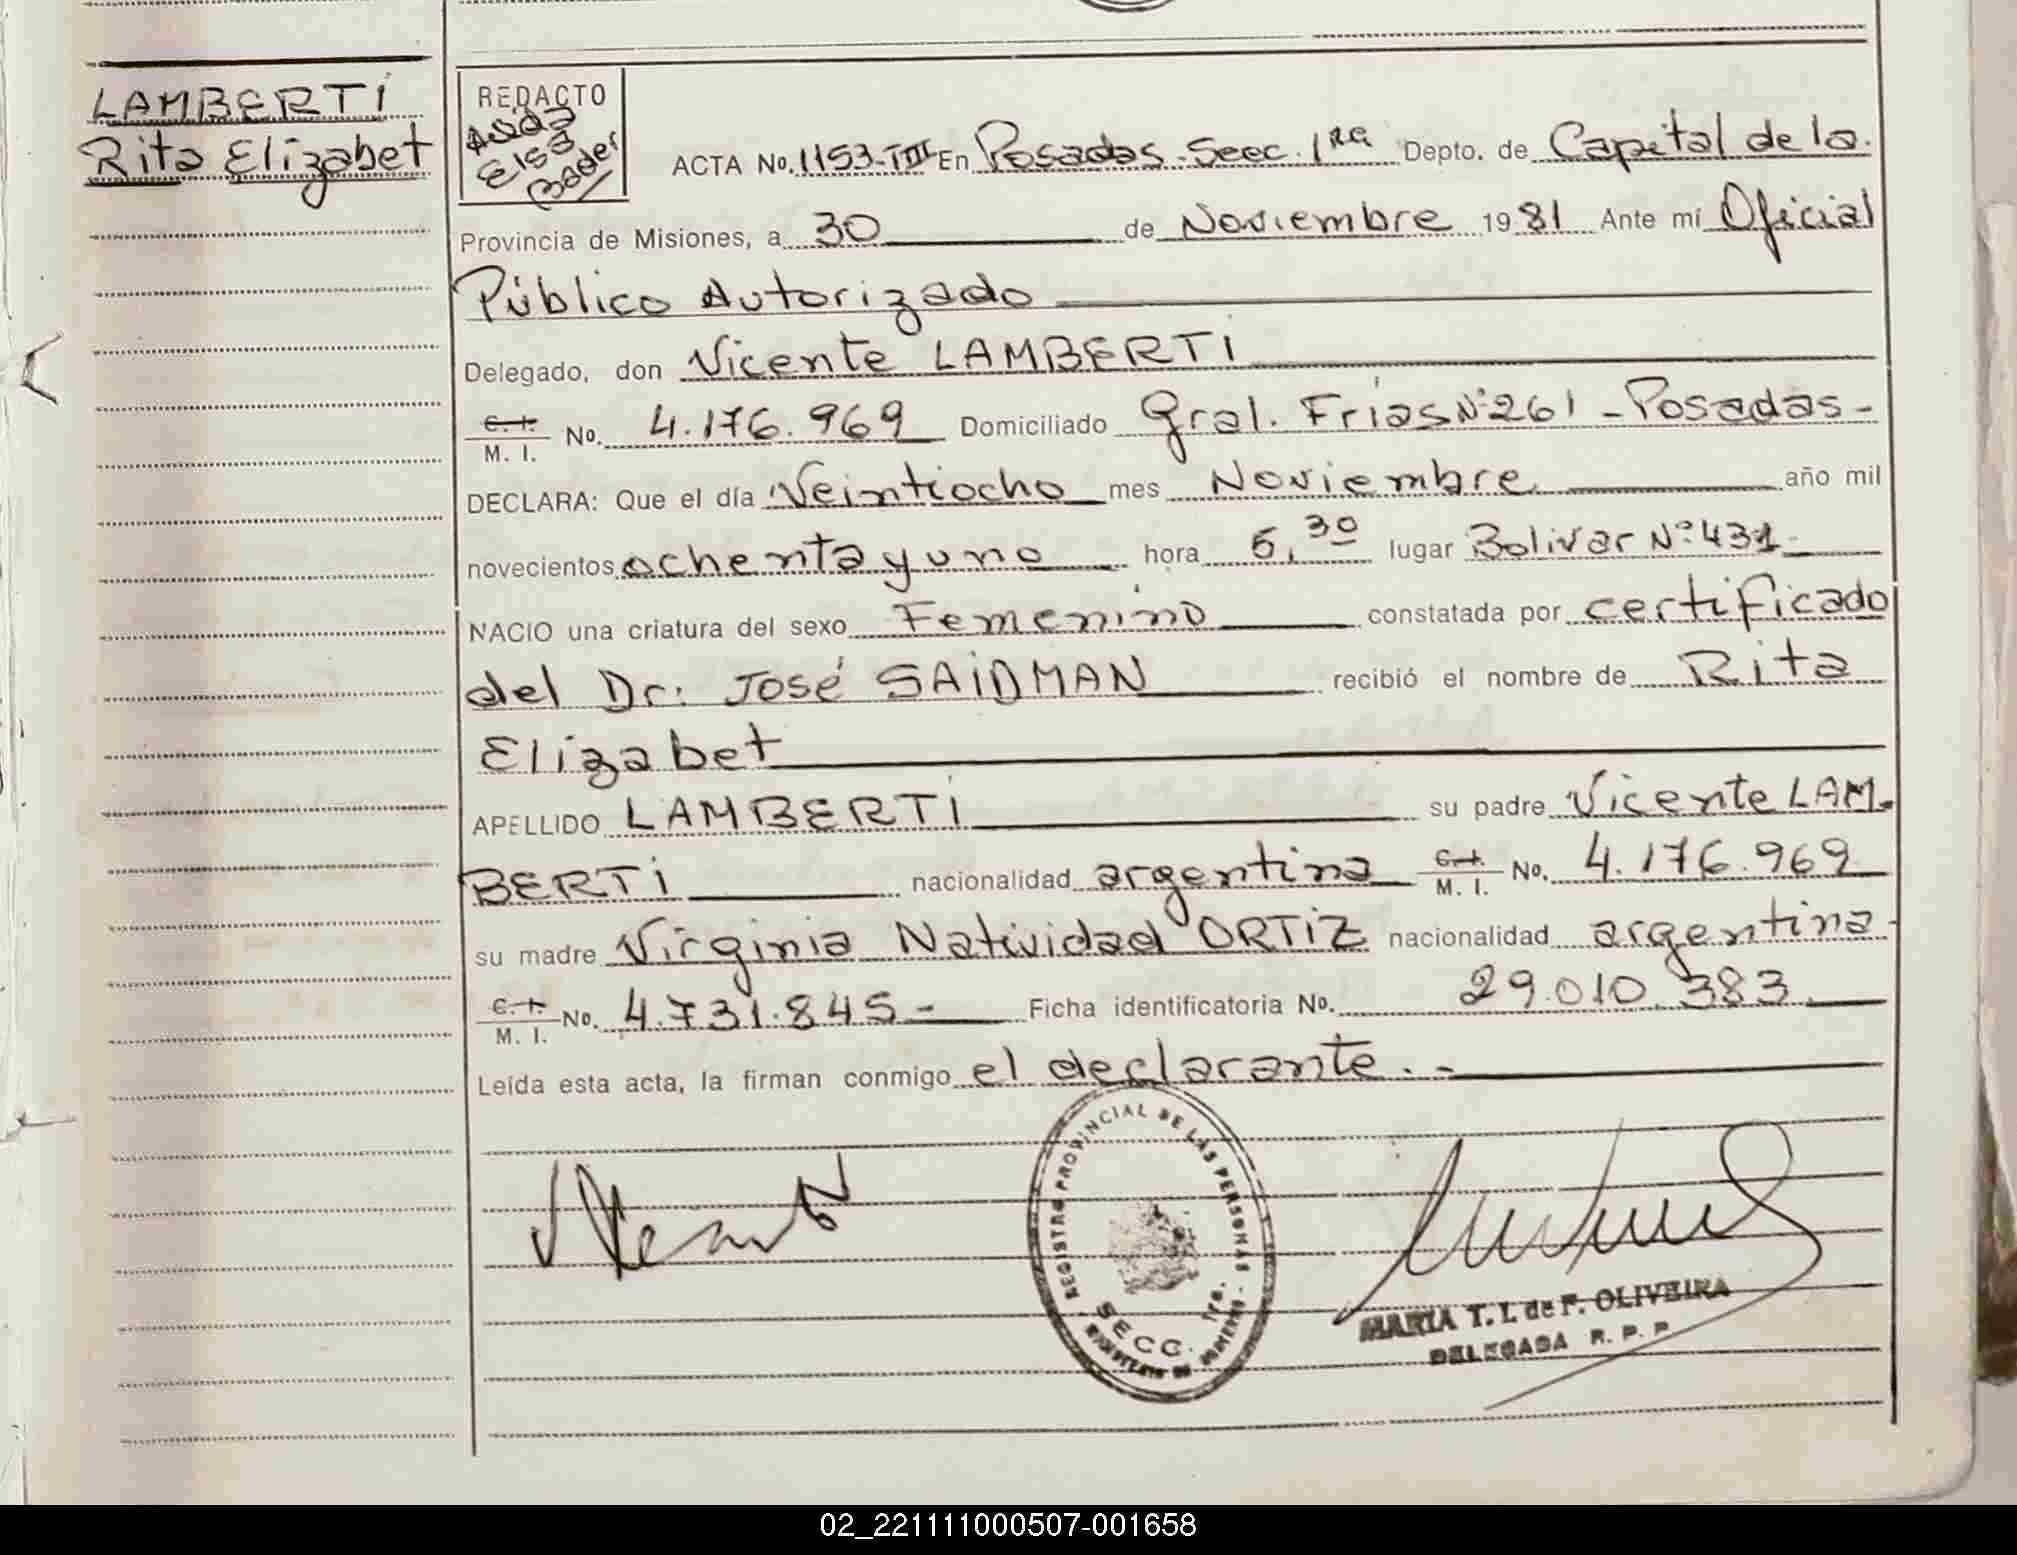 LAMBERTI
Rita Elizabet
REDACTO
Elsa
Bader
ACTA No. 1153-TIII En Posadas-Secc. 1ra Depto. de Capital de la
Provincia de Misiones, a 30 de Noviembre 1981 Ante mí Oficial
Público Autorizado
Delegado, don Vicente LAMBERTI
C. I. M. I. No. 4.176.969 Domiciliado Gral. Frías Nº 261 - Posadas -
DECLARA: Que el día Veintiocho mes Noviembre año mil
novecientos ochenta y uno hora 6,30 lugar Bolivar Nº 431
NACIO una criatura del sexo Femenino constatada por certificado
del Dr: José SAIDMAN recibió el nombre de Rita
Elizabet
APELLIDO LAMBERTI su padre Vicente LAM-
BERTI nacionalidad argentina C. I. M. I. No. 4.176.969
su madre Virginia Natividad ORTIZ nacionalidad argentina
C. I. M. I. No. 4.731.845 - Ficha identificatoria No. 29.010.383
Leída esta acta, la firman conmigo el declarante. -
REGISTRO PROVINCIAL DE LAS PERSONAS
SECC. 1ra.
MARIA T. I. de F. OLIVEIRA
DELEGADA R. P. P.
02_221111000507-001658